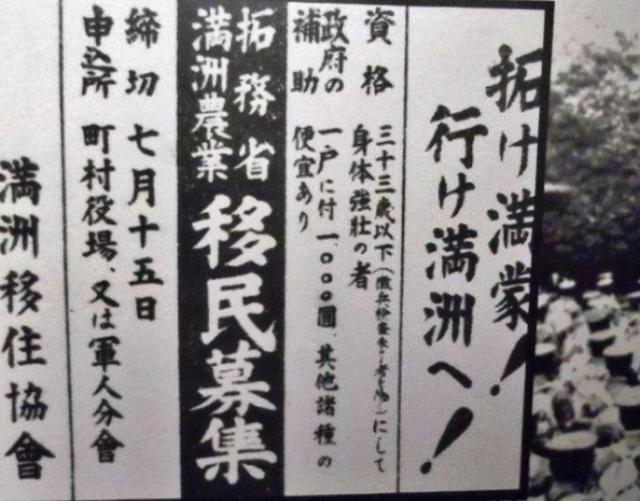 拓け満蒙!
行け満洲へ!
資格 三十三歳以下(徴兵検査未了者を除)にして
身体強壮の者
政府の補助 一戸に付一、〇〇〇圓、其他諸種の
便宜あり
拓務省
満洲農業 移民募集
締切 七月十五日
申込所 町村役場、又は軍人分會
満洲移住協會